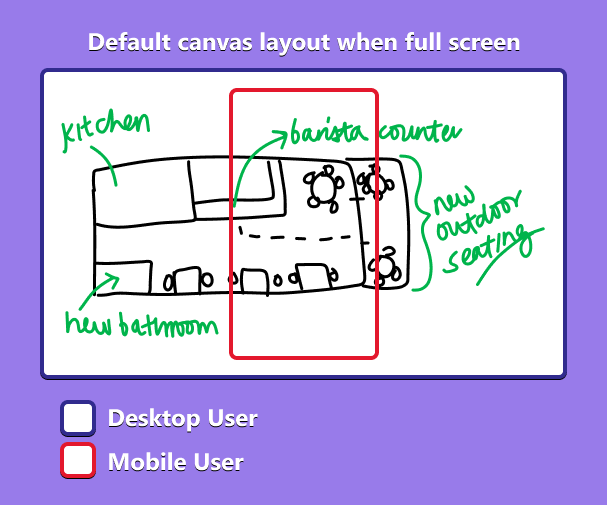 Default canvas layout when full screen
kitchen
barista counter
new
outdoor
seating
new bathroom
Desktop User
Mobile User